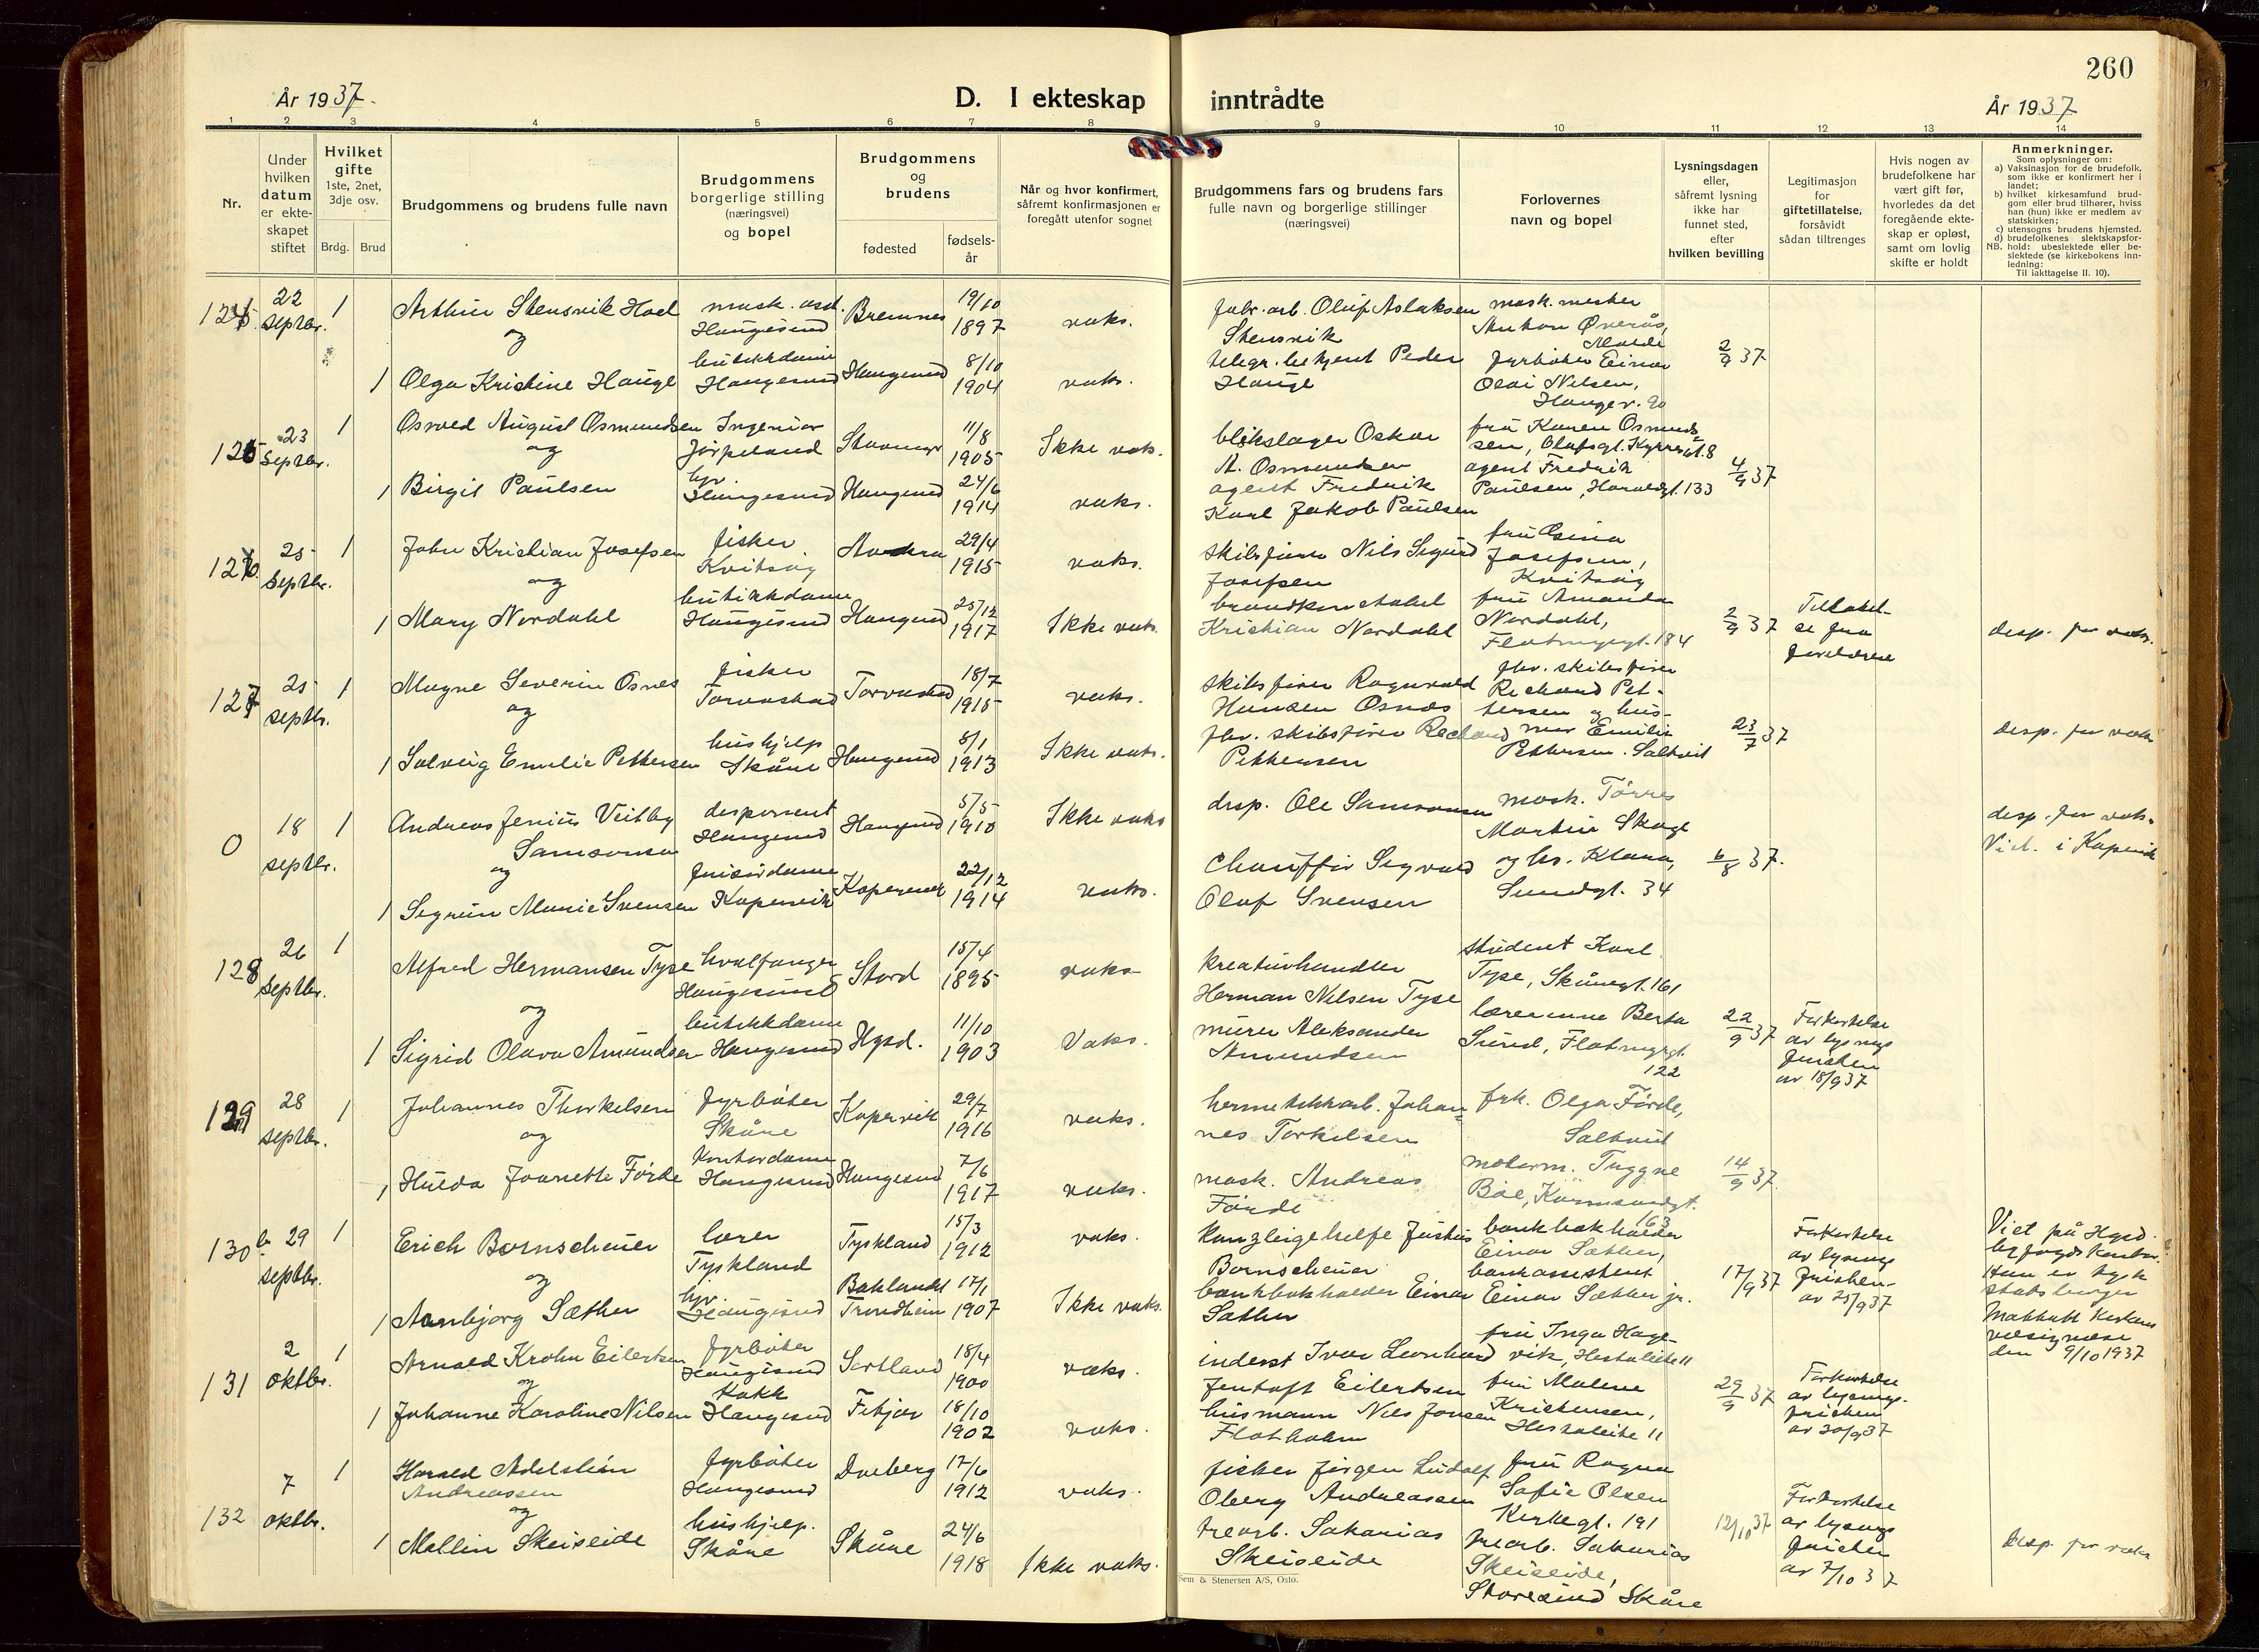 260
År 1937.
D. I ekteskap inntrådte
År 1937
1 2 3 4 5 6 7 8 9 10 11 12 13 14
Nr.
Under
hvilken
datum
er ekte-
skapet
stiftet
Hvilket
gifte
1ste, 2net,
3dje osv.
Brdg. Brud
Brudgommens og brudens fulle navn
Brudgommens
borgerlige stilling
(næringsvei)
og bopel
Brudgommens
og
brudens
fødested
fødsels-
år
Når og hvor konfirmert,
såfremt konfirmasjonen er
foregått utenfor sognet
Brudgommens fars og brudens fars
fulle navn og borgerlige stillinger
(næringsvei)
Forlovernes
navn og bopel
Lysningsdagen
eller,
såfremt lysning
ikke har
funnet sted,
efter
hvilken bevilling
Legitimasjon
for
giftetillatelse,
forsåvidt
sådan tiltrenges
Hvis nogen av
brudefolkene har
vært gift før,
hvorledes da det
foregående ekte-
skap er opløst,
samt om lovlig
skifte er holdt
Anmerkninger.
Som oplysninger om:
a) Vaksinasjon for de brudefolk,
som ikke er konfirmert her i
landet;
b) hvilket kirkesamfund brud-
gom eller brud tilhører, hviss
han (hun) ikke er medlem av
statskirken;
c) utensogns brudens hjemsted.
d) brudefolkenes slektskapsfor-
NB. hold: ubeslektede eller be-
slektede (se kirkebokens inn-
ledning:
Til iakttagelse II. 10).
22
septbr.
1
Arthur Stensvik Hoel
og
mask. asst.
Haugesund
Bremnes
19/10
1897
vaks.
fabr. arb. Oluf Aslaksen
Stensvik
mask. mester
Anton Øverås,
Molde
1
Olga Kristine Hauge
butikkdame
Haugesund
Haugesund
8/10
1904
vaks.
telegr. betjent Peder
Hauge
fyrbøter Einar
Olai Nilsen,
Haugev. 90
2/9 37
125
23
septbr.
1
Osvald August Osmundsen
og
Ingeniør
Jørpeland
Stavanger
11/8
1905
Ikke vaks.
blikslager Oskar
A. Osmundsen
fru Karen Osmund-
sen, Olafsgt. Kyrresgt. 8
1
Birgit Paulsen
hjv.
Haugesund
Haugesund
24/6
1914
vaks.
agent Fredrik
Karl Jakob Paulsen
agent Fredrik
Paulsen, Haraldsgt. 133
4/9 37
126.
25
septbr.
1
John Kristian Josefsen
og
fisker
Kvitsøy
29/4
1915
vaks.
skibsfører Nils Sigurd
Josefsen
fru Osina
Josefsen,
Kvitsøy
1
Mary Nordahl
butikkdame
Haugesund
Haugesund
25/12
1917
Ikke vaks.
brandkonstabel
Kristian Nordahl
fru Amanda
Nordahl,
Flotmyrgt. 184
2/9 37
Tillatel-
se fra
foreldrene
desp. for vaks.
127
25
septbr.
1
Magne Severin Osnes
og
fisker
Torvastad
Torvastad
18/7
1915
vaks.
skibsfører Ragnvald
Hansen Osnes
fhv. skibsfører
Richard Pet-
tersen og hus-
1
Solveig Emilie Pettersen
hushjelp
Skåre
Haugesund
8/1
1913
Ikke vaks.
fhv. skibsfører Richard
Pettersen
mor Emilie
Pettersen. Saltveit
23/7 37
desp. for vaks
0
18
septbr.
1
Andreas Jenius Veitby
Samsonsen
og
disponent
Haugesund
Haugesund
5/5
1910
Ikke vaks
disp. Ole Samsonsen
mask. Tørres
Martin Skoge
desp. for vaks.
Viet. i Kopervik
1
Sigrun Marie Svensen
frisørdame
Kopervik
Kopervik
22/12
1914
vaks.
Chauffør Sigvald
Olaf Svensen
og hr. Klara,
Sundgt. 34
6/8 37.
128
26
septbr.
1
Alfred Hermansen Tyse
og
hvalfanger
Haugesund
Stord
15/4
1895
vaks
kreaturhandler
Herman Nilsen Tyse
student Karl
Tyse, Skåregt. 161
1
Sigrid Olava Amundsen
butikkdame
Haugesund
Hgsd.
11/10
1903
Vaks.
murer Aleksander
Amundsen
lærerinne Berta
Sund, Flotmyrgt.
122
22/9 37
Forkortelse
av lysnings
fristen
av 18/9 37
129
28
septbr.
1
Johannes Thorkelsen
og
fyrbøter
Skåre
Kopervik
29/7
1916
vaks.
hermetikkarb. Johan-
nes Torkelsen
frk. Olga Førde,
Saltveit
1
Hulda Jeanette Førde
Kontordame
Haugesund
Haugesund
7/6
1917
vaks.
mask. Andreas
Førde
motorm. Tryggve
Bøe, Karmsundgt.
163
14/9 37.
130
29
septbr.
1
Erich Bornscheuer
og
lærer
Tyskland
Tyskland
15/3
1912
vaks.
Kanzleigehelfe Justus
Bornscheuer
bankbokholder
Einar Sæther,
Forkortelse
av lysnings
fristen
av 25/9 37
Viet på Hgsd.
byfogdkontor.
Hun er tysk
statsborger
Mottatt Kirkens
velsignelse
den 9/10 1937
1
Aanbjørg Sæther
hjv.
Haugesund
Baklandet
Trondheim
17/1
1907
Ikke vaks.
bankbokholder Einar
Sæther
bankassistent
Einar Sæther jr.
17/9 37
131
2
oktbr.
1
Arnold Krohn Eilertsen
og
fyrbøter
Haugesund
Sortland
18/4
1900
vaks.
inderst Ivar Leonhard
Jentoft Eilertsen
fru Inga Hage-
vik, Hestaleite 11
1
Johanne Karoline Nilsen
Kokk
Haugesund
Fitjar
18/10
1902
vaks.
husmann Nils Jonsen
Flotholm
fru Malene
Kristensen,
Hestaleite 11
29/9 37
Forkortelse
av lysnings.
fristen
av 30/9 37
132
7
oktbr.
1
Harald Adelstein
Andreassen
og
fyrbøter
Haugesund
Dverberg
17/6
1912
vaks.
fisker Jørgen Ludolf
Oberg Andreassen
fru Ragna
Sofie Olsen
Kirkegt. 191
1
Mallin Skeiseide
hushjelp.
Skåre
Skåre
24/6
1918
Ikke vaks.
trearb. Sakarias
Skeiseide
trearb. Sakarias
Skeiseide,
Storesund Skåre
12/10 37
Forkortelse
av lysnings
fristen
av 7/10 37
Desp. for vaks
Sem & Stenersen A/S, Oslo.